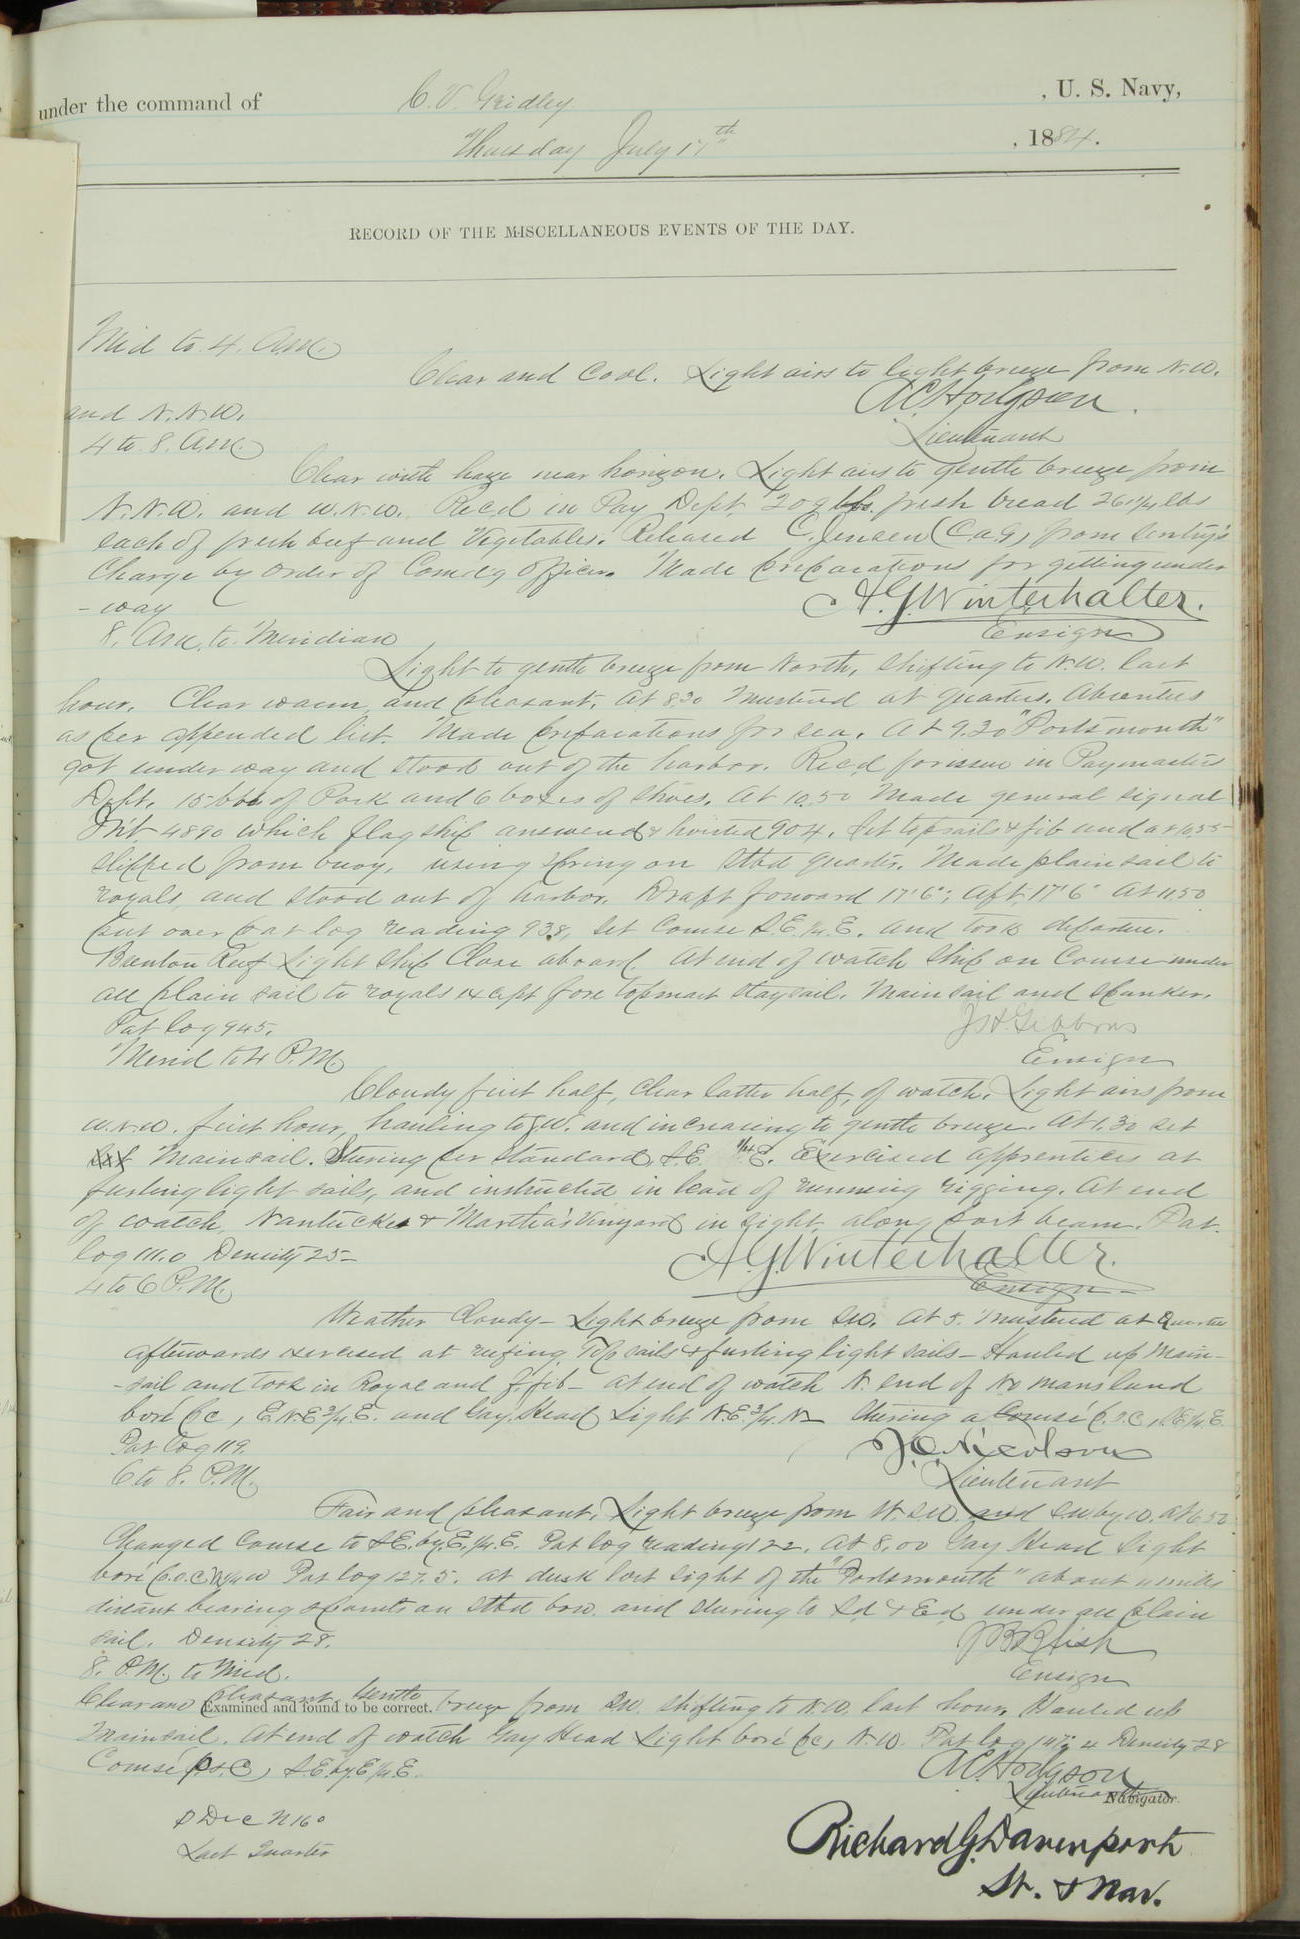 under the command of C. V. Gridley , U. S. Navy,
Thursday July 17th , 1884.
RECORD OF THE MISCELLANEOUS EVENTS OF THE DAY.
Mid to 4. A.M.
Clear and Cool. Light airs to light breeze from N.W.
and N.N.W.
A.C. Hodgson.
Lieutenant
4 to 8. A.M.
Clear with haze near horizon. Light airs to gentle breeze from
N.N.W. and W.N.W. Rec'd in Pay Dept. 209 lbs. fresh bread 261 1/4 lbs
each of fresh beef and Vegetables. Released C. Jensen (C.a.G) from Sentry's
Charge by order of Comd'g Officer. Made preparations for getting under
-way
A.G. Winterhalter.
Ensign
8. A.M. to Meridian
Light to gentle breeze from North, shifting to N.W. last
hour. Clear warm and pleasant. At 8.30 Mustered at quarters. Absentees
as per appended list. Made preparations for sea. At 9.30 "Portsmouth"
got under way and stood out of the harbor. Rec'd for issue in Paymaster's
Dept. 15 bbls of Pork and 6 boxes of Shoes. At 10.50 Made general signal
Int 4890 which flagship answered & hoisted 904. Set topsails & jib and at 10.55
slipped from buoy, using spring on Stbd quarter. Made plain sail to
royals, and stood out of harbor. Draft forward 17'6"; aft 17'6" At 11.50
put over pat log reading 938, set Course S.E. 1/4 E. and took departure.
Brenton Reef Light Ship Close aboard. At end of watch Ship on Course under
all plain sail to royals except fore topmast staysail. Mainsail and spanker.
Pat log 945.
J.H. Gibbons
Ensign
Merid to 4 P.M.
Cloudy first half, Clear latter half, of watch. Light airs from
W.N.W. first hour, hauling to S.W. and increasing to gentle breeze. At 1.30 set
Mainsail. Steering per Standard, S.E. 1/4 E. Exercised apprentices at
furling light sails, and instructed in lead of running rigging. At end
of watch, Nantucket & Martha's Vineyard in sight, along port beam. Pat.
log 111.0 Density 25
A.G. Winterhalter.
Ensign
4 to 6 P.M.
Weather Cloudy - Light breeze from SW. At 5. Mustered at Quarters
afterwards exercised at reefing Topsails & furling light sails - Hauled up Main-
-sail and took in Royal and F. jib - at end of watch N. end of No mans land
bore pc, E.N.E 3/4 E. and Gay Head Light N.E. 3/4 N - Steering a Course p.s.c, S.E 1/4 E.
Pat Log 119.
J.O. Nicolson
Lieutenant
6 to 8. P.M.
Fair and pleasant. Light breeze from W.SW. and SW by W. at 6.50
Changed Course to S.E. by E. 1/4 E. Pat log reading 122. At 8.00 Gay Head Light
bore Pat log 127.5. At dusk lost sight of the "Portsmouth" about miles
distant bearing points on Stbd bow. and steering to Sd & Ed under all plain
sail. Density 28.
Ensign
8. P.M. to Mid.
Clear and pleasant. Gentle breeze from SW. shifting to N.W. last hour. Hauled up
Examined and found to be correct.
Mainsail. At end of watch Gay Head Light bore pc, N.W. Pat log Density 28
Course p.s.c, S.E. by E 1/4 E.
A.C. Hodgson
Lieutenant
Navigator.
Dec N 16°
Last Quarter
Richard G. Davenport
Lt. & Nav.